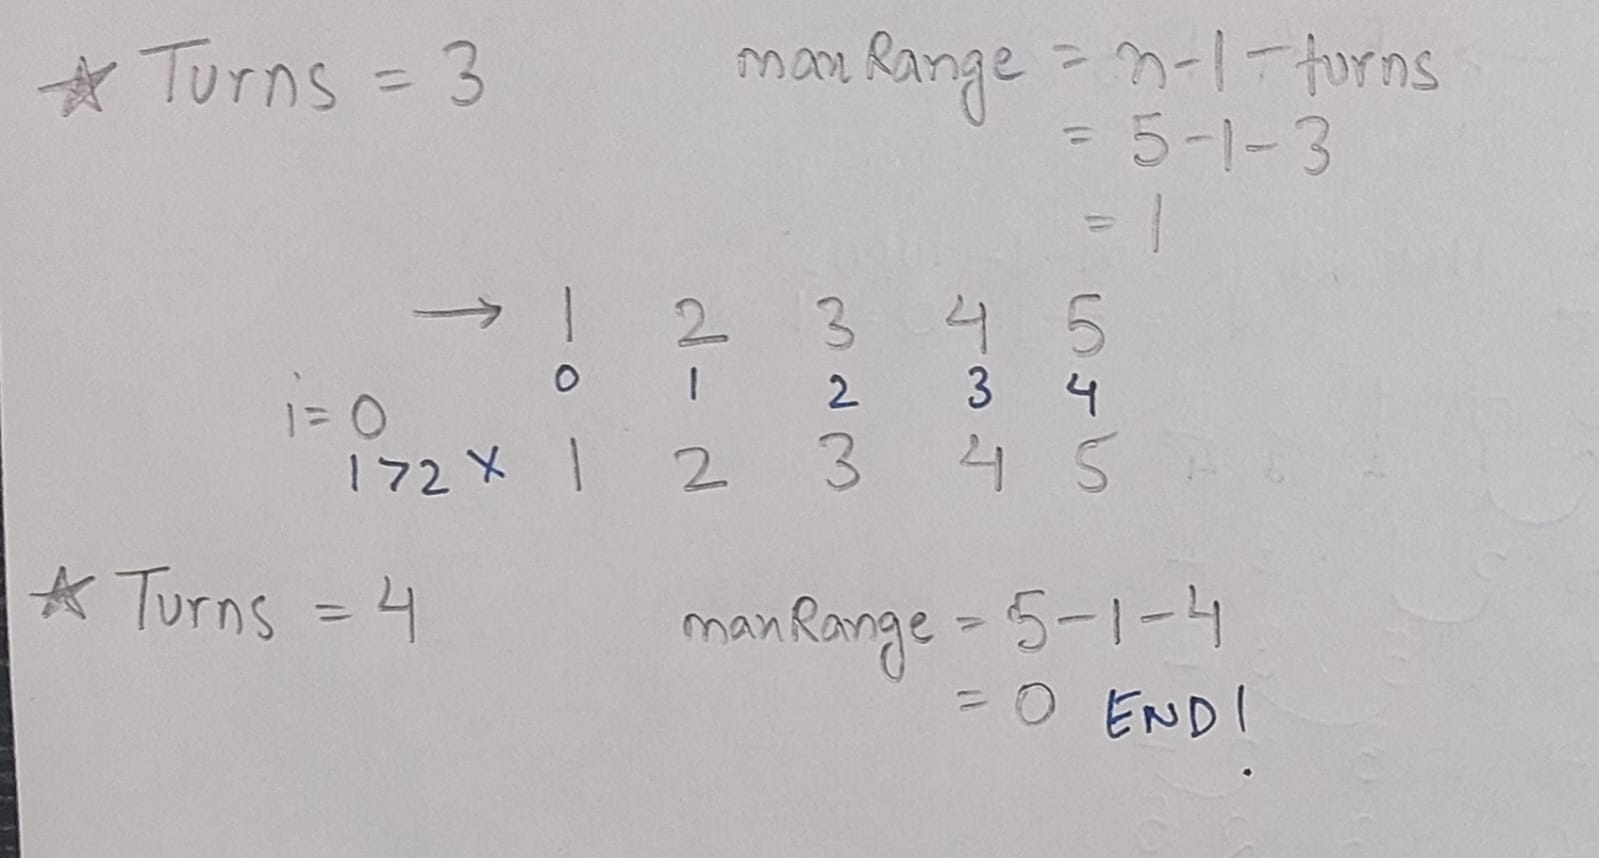 ☆ Turns = 3 maxRange = n-1-turns
= 5-1-3
= 1
→ 1 2 3 4 5
0 1 2 3 4
i=0
1>2 X 1 2 3 4 5
☆ Turns = 4 maxRange = 5-1-4
= 0 END!